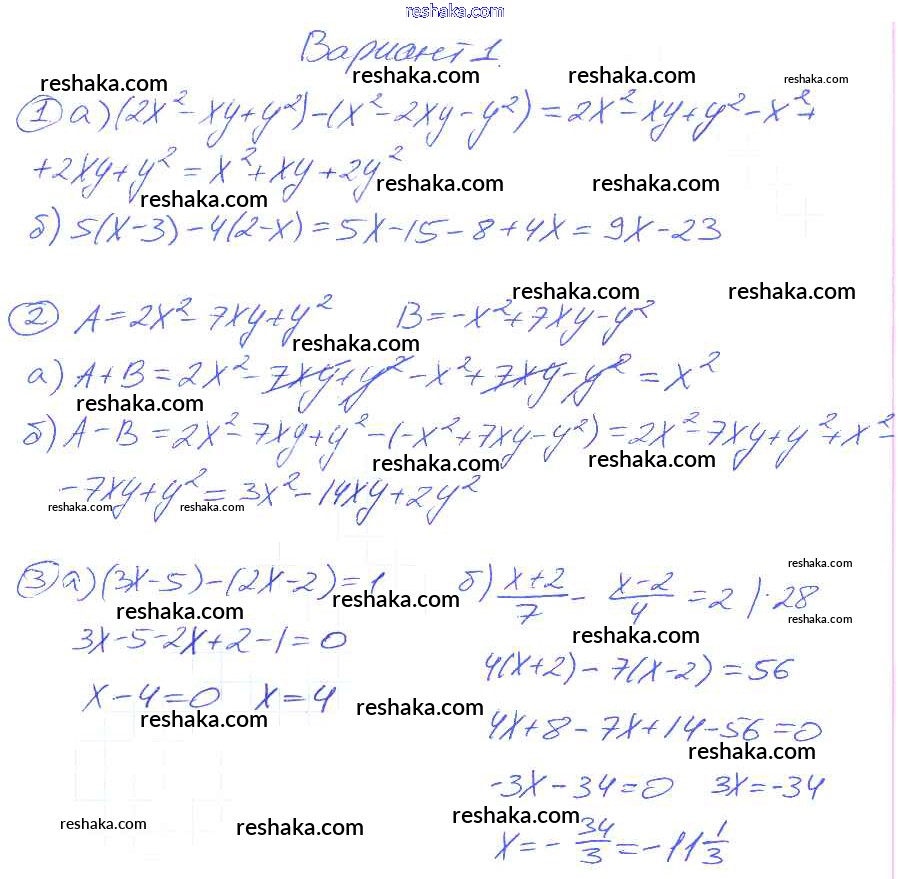 reshaka.com
Вариант 1.
reshaka.com reshaka.com reshaka.com reshaka.com
① а) (2x² - xy + y²) - (x² - 2xy - y²) = 2x² - xy + y² - x² +
+ 2xy + y² = x² + xy + 2y²
reshaka.com reshaka.com reshaka.com
б) 5(x - 3) - 4(2 - x) = 5x - 15 - 8 + 4x = 9x - 23
reshaka.com reshaka.com
② A = 2x² - 7xy + y² B = -x² + 7xy - y²
reshaka.com
а) A + B = 2x² - 7xy + y² - x² + 7xy - y² = x²
reshaka.com
б) A - B = 2x² - 7xy + y² - (-x² + 7xy - y²) = 2x² - 7xy + y² + x² -
reshaka.com reshaka.com
- 7xy + y² = 3x² - 14xy + 2y²
reshaka.com reshaka.com
reshaka.com
③ а) (3x - 5) - (2x - 2) = 1 б) (x+2)/7 - (x-2)/4 = 2 | · 28
reshaka.com reshaka.com reshaka.com
3x - 5 - 2x + 2 - 1 = 0
reshaka.com
4(x + 2) - 7(x - 2) = 56
x - 4 = 0 x = 4
reshaka.com reshaka.com
4x + 8 - 7x + 14 - 56 = 0
reshaka.com
-3x - 34 = 0 3x = -34
reshaka.com reshaka.com reshaka.com
x = - 34/3 = -11 1/3